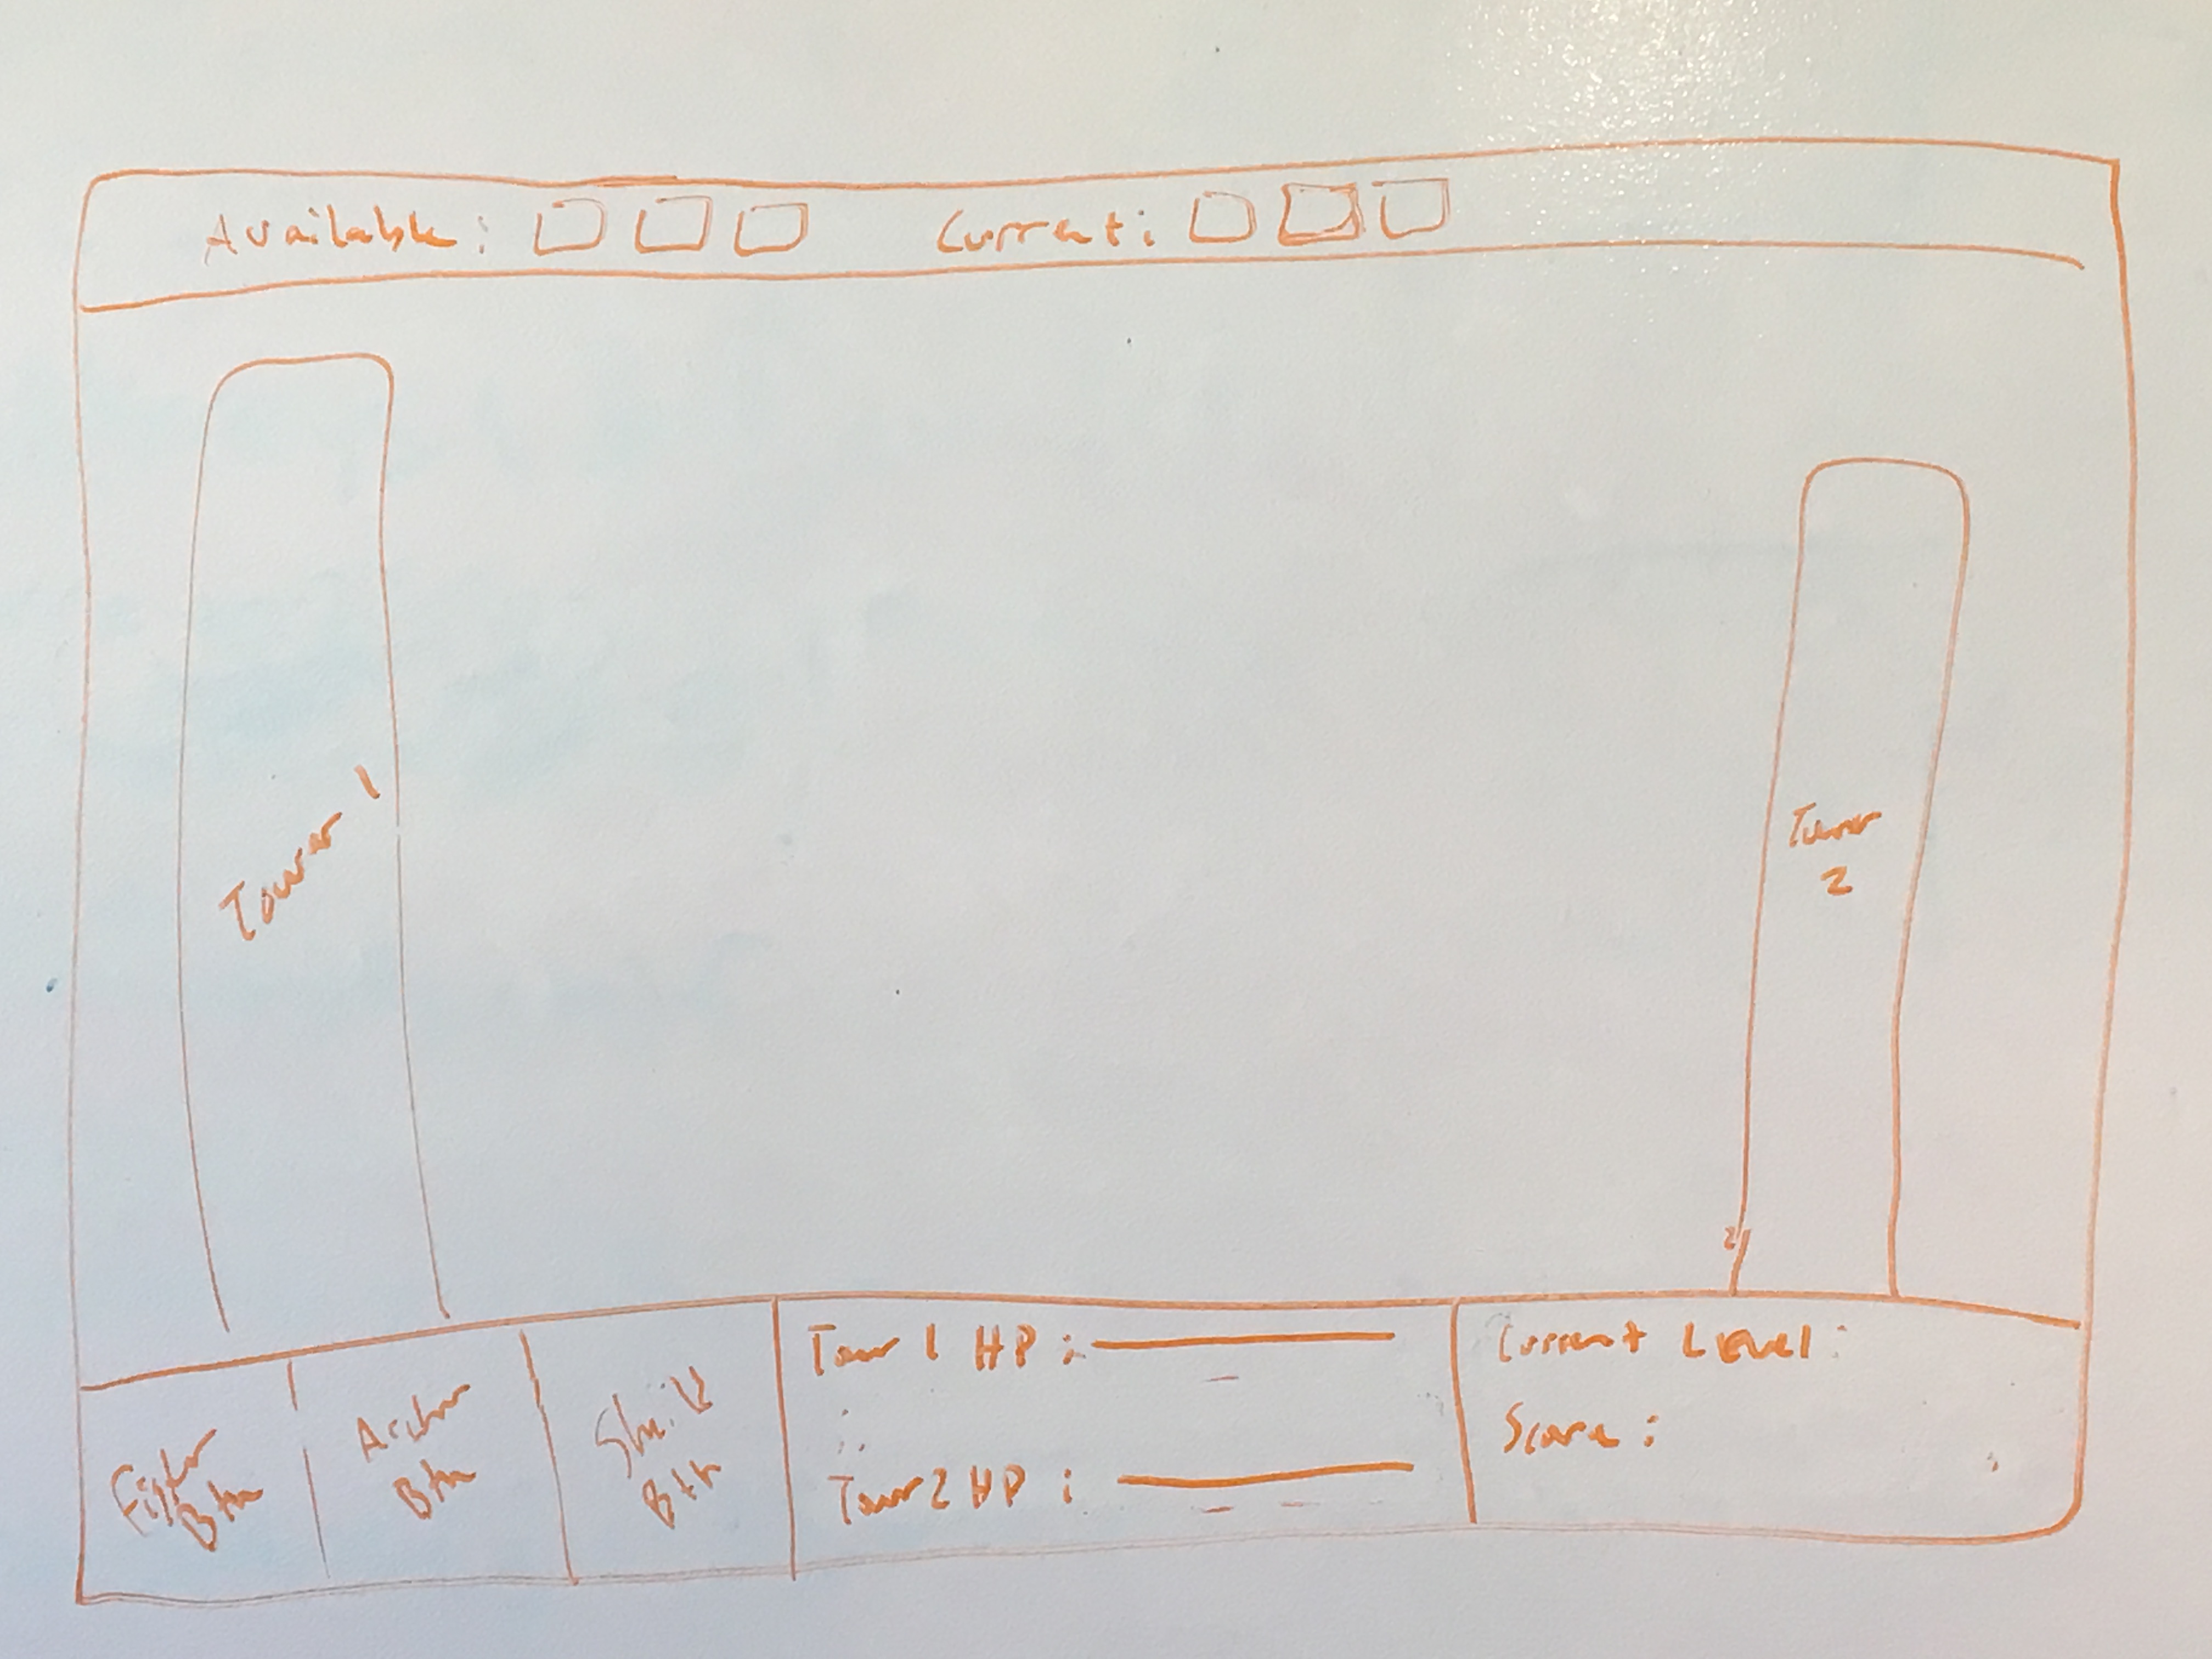 Available:
Current:
Tower 1
Tower
2
Fighter
Btn
Archer
Btn
Shield
Btn
Tower 1 HP :
Tower 2 HP :
Current Level:
Score :